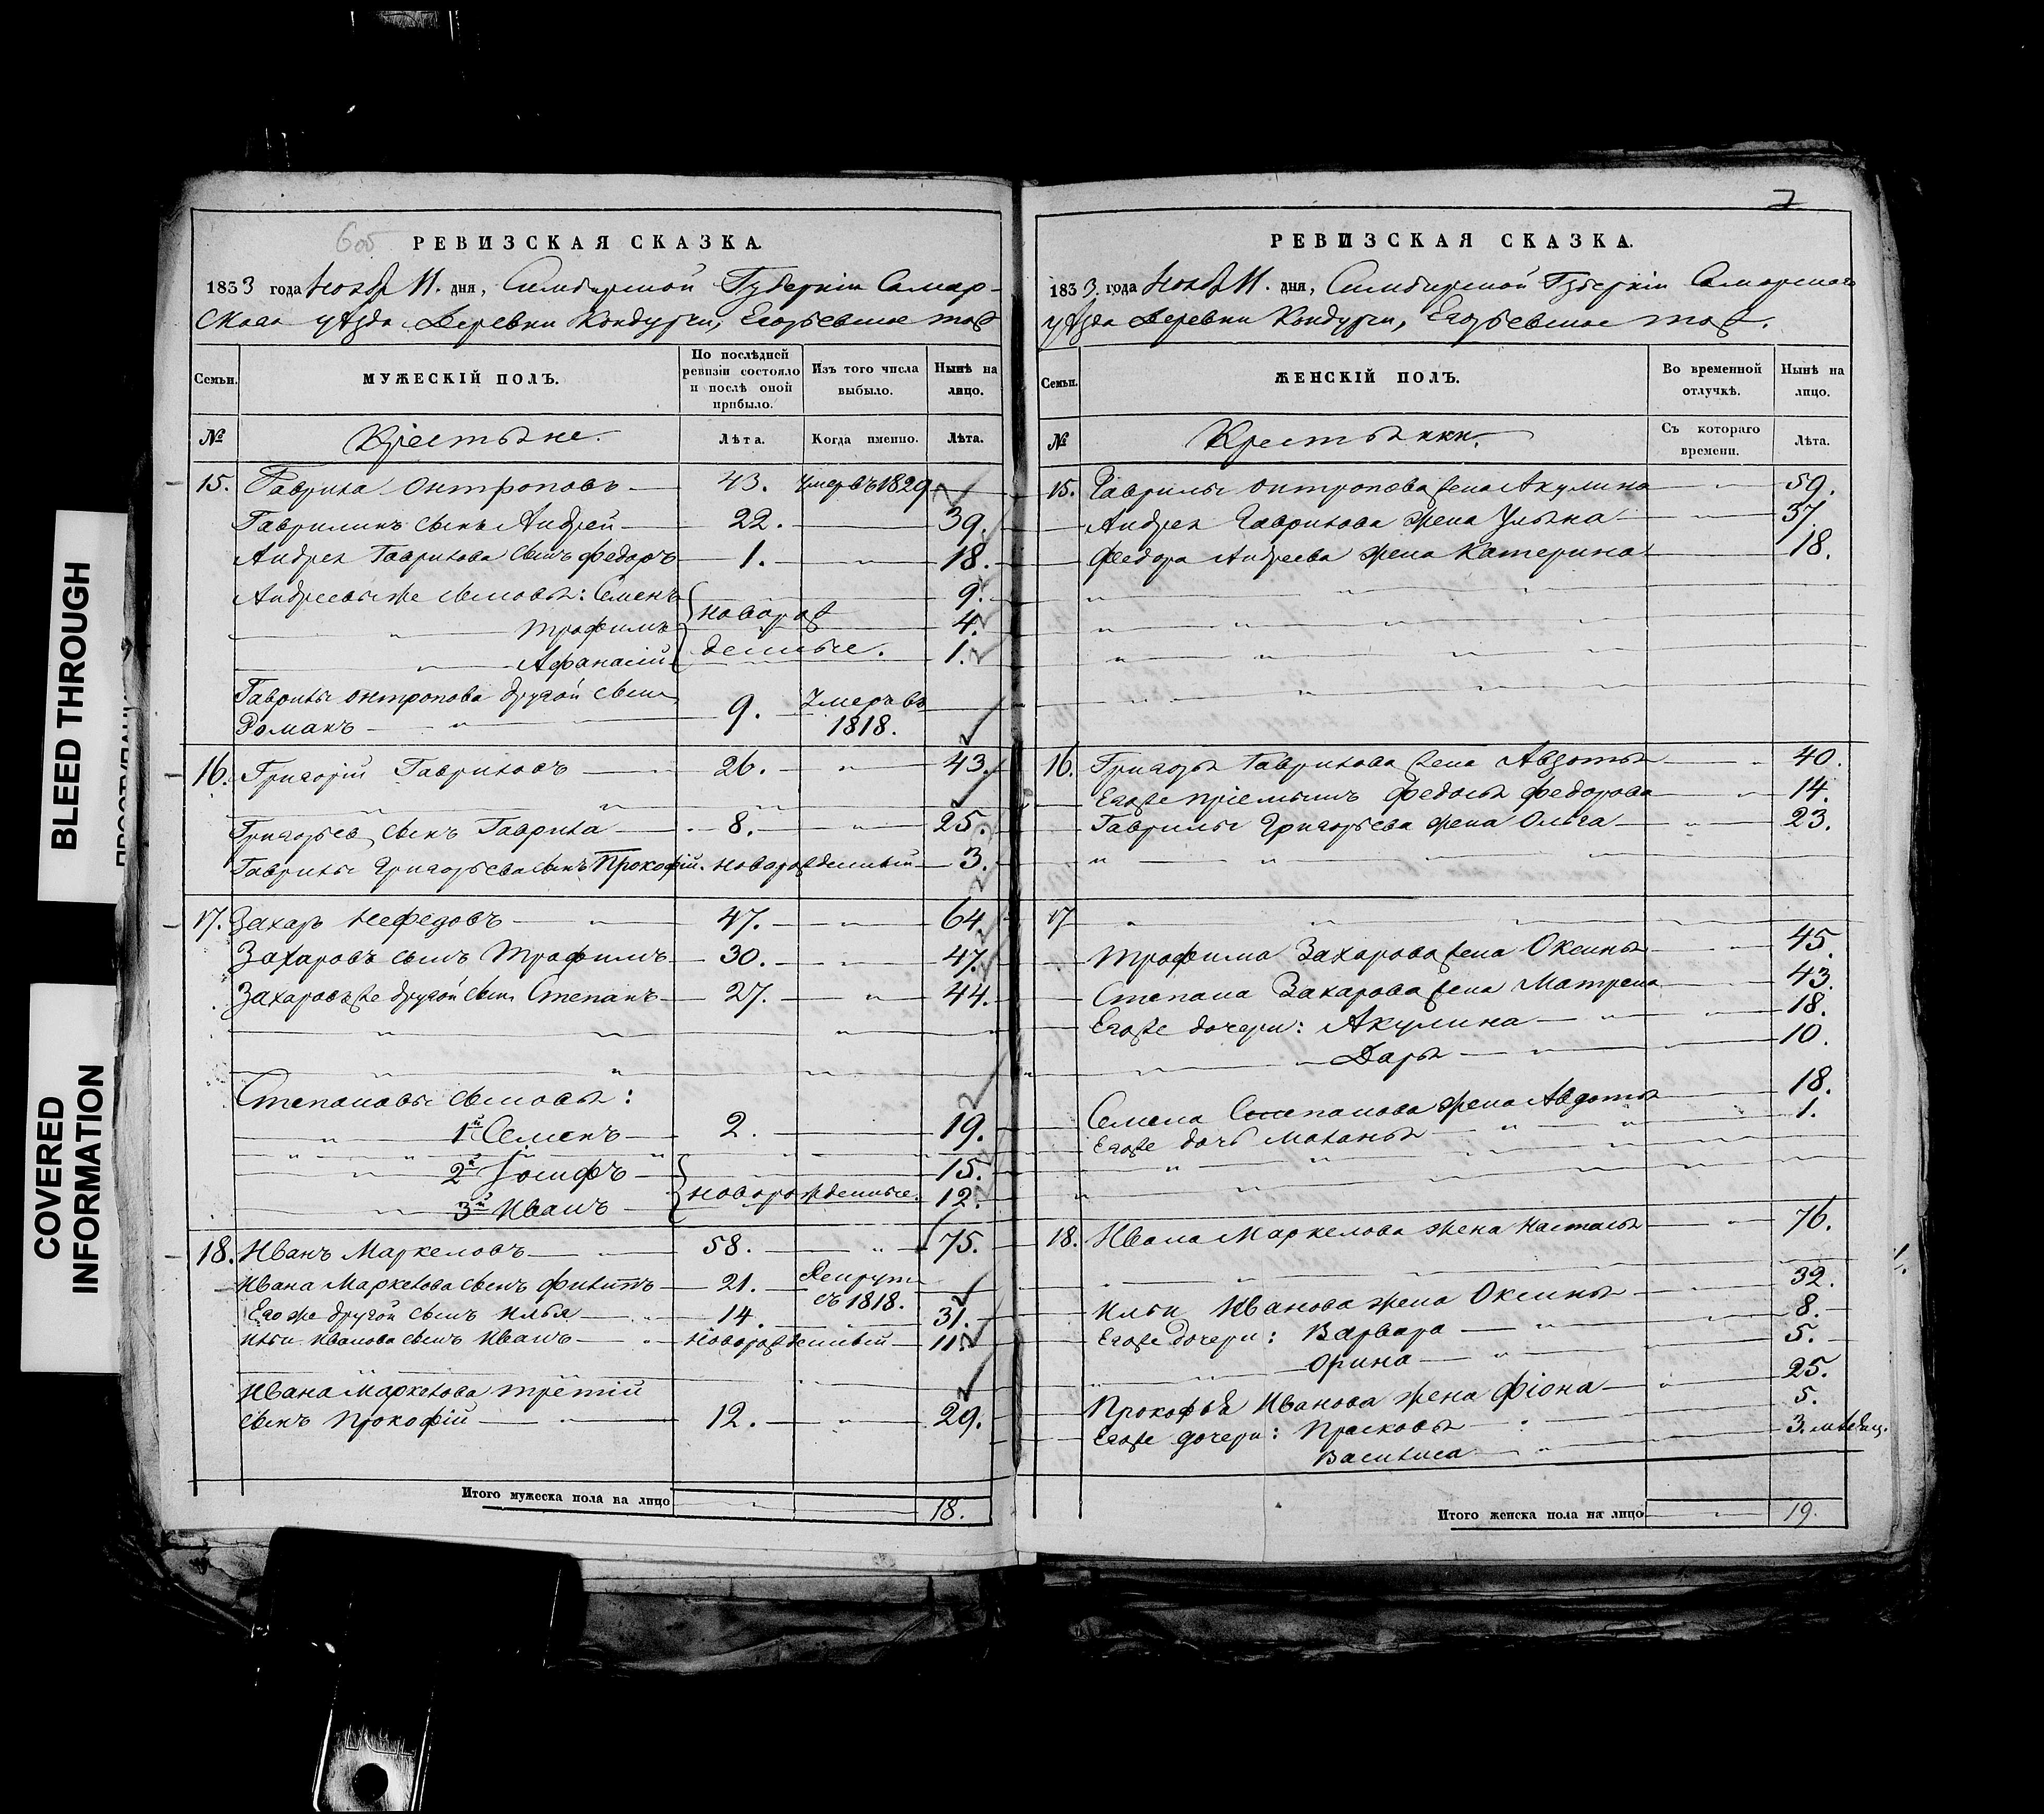 BLEED THROUGH
COVERED
INFORMATION
РЕВИЗСКАЯ СКАЗКА.
1833 года Ноябр 11. дня, Симбирской Губернiи Самар-
скаго уѣзда Деревни Кондурчи, Егорьевское тож
Семьи.
МУЖЕСКІЙ ПОЛЪ.
По послѣдней ревизіи состояло и послѣ оной прибыло.
Изъ того числа выбыло.
Нынѣ на лицо.
№
Крестьяне.
Лѣта.
Когда именно.
Лѣта.
15. Гаврила Онтроповъ 43. Умеръ въ 1829
Гаврилинъ сынъ Андрей 22. 39.
Андрея Гаврилова сынъ Федоръ 1. 18.
Андреевы же сыновья: Семенъ 9.
Трофимъ новорож 4.
Афанасій денные. 1.
Гаврилы Онтропова другой сынъ
Романъ 9. Умеръ въ 1818.
16. Григорій Гавриловъ 26. 43.
Григорьев сынъ Гаврила 8. 25.
Гаврилы Григорьева сынъ Прокофій. новорожденный 3.
17. Захаръ Нефедовъ 47. 64
Захаровъ сынъ Трофимъ 30. 47.
Захаровъ же другой сынъ Степанъ 27. 44.
Степановы сыновья:
1й Семенъ 2. 19.
2й Іосифъ 15.
3й Иванъ новорожденные. 12.
18. Иванъ Маркеловъ 58. 75.
Ивана Маркелова сынъ Филипъ 21. Рекрут съ 1818.
Его же другой сынъ Илья 14. 31.
Ильи Иванова сынъ Иванъ новорожденный 11.
Ивана Маркелова третій
сынъ Прокофій 12. 29.
Итого мужеска пола на лицо 18.
РЕВИЗСКАЯ СКАЗКА.
1833. года Ноябр 11. дня, Симбирской Губернiи Самарскаго
уѣзда Деревни Кондурчи, Егорьевское тож.
Семьи.
ЖЕНСКІЙ ПОЛЪ.
Во временной отлучкѣ.
Нынѣ на лицо.
№
Крестьянки.
Съ котораго времени.
Лѣта.
15. Гаврилы Онтропова жена Акулина 59.
Андрея Гаврилова жена Ульяна 37.
Федора Андреева жена Катерина 18.
16. Григорья Гаврилова жена Авдотья 40.
Его же пріемышъ Федосья Федорова 14.
Гаврилы Григорьева жена Ольга 23.
17
Трофима Захарова жена Оксинья 45
Степана Захарова жена Матрена 43.
Его же дочери: Акулина 18.
Дарья 10.
Семена Степанова жена Авдотья 18.
Его же дочь Маланья 1.
18. Ивана Маркелова жена Настасья 76.
Ильи Иванова жена Оксинья 32.
Его же дочери: Варвара 8.
Орина 5.
Прокофья Иванова жена Фіона 25.
Его же дочери: Прасковья 5.
Василиса 3. мѣсяц.
Итого женска пола на лицо 19.